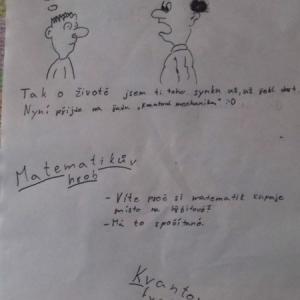 Tak o životě jsem ti toho synku už, už řekl dost.
Nyní přijde na řadu „Kvantová mechanika“ :D
Matematikův
hrob
- Víte proč si matematik kupuje
místo na hřbitově?
- Má to spočítané.